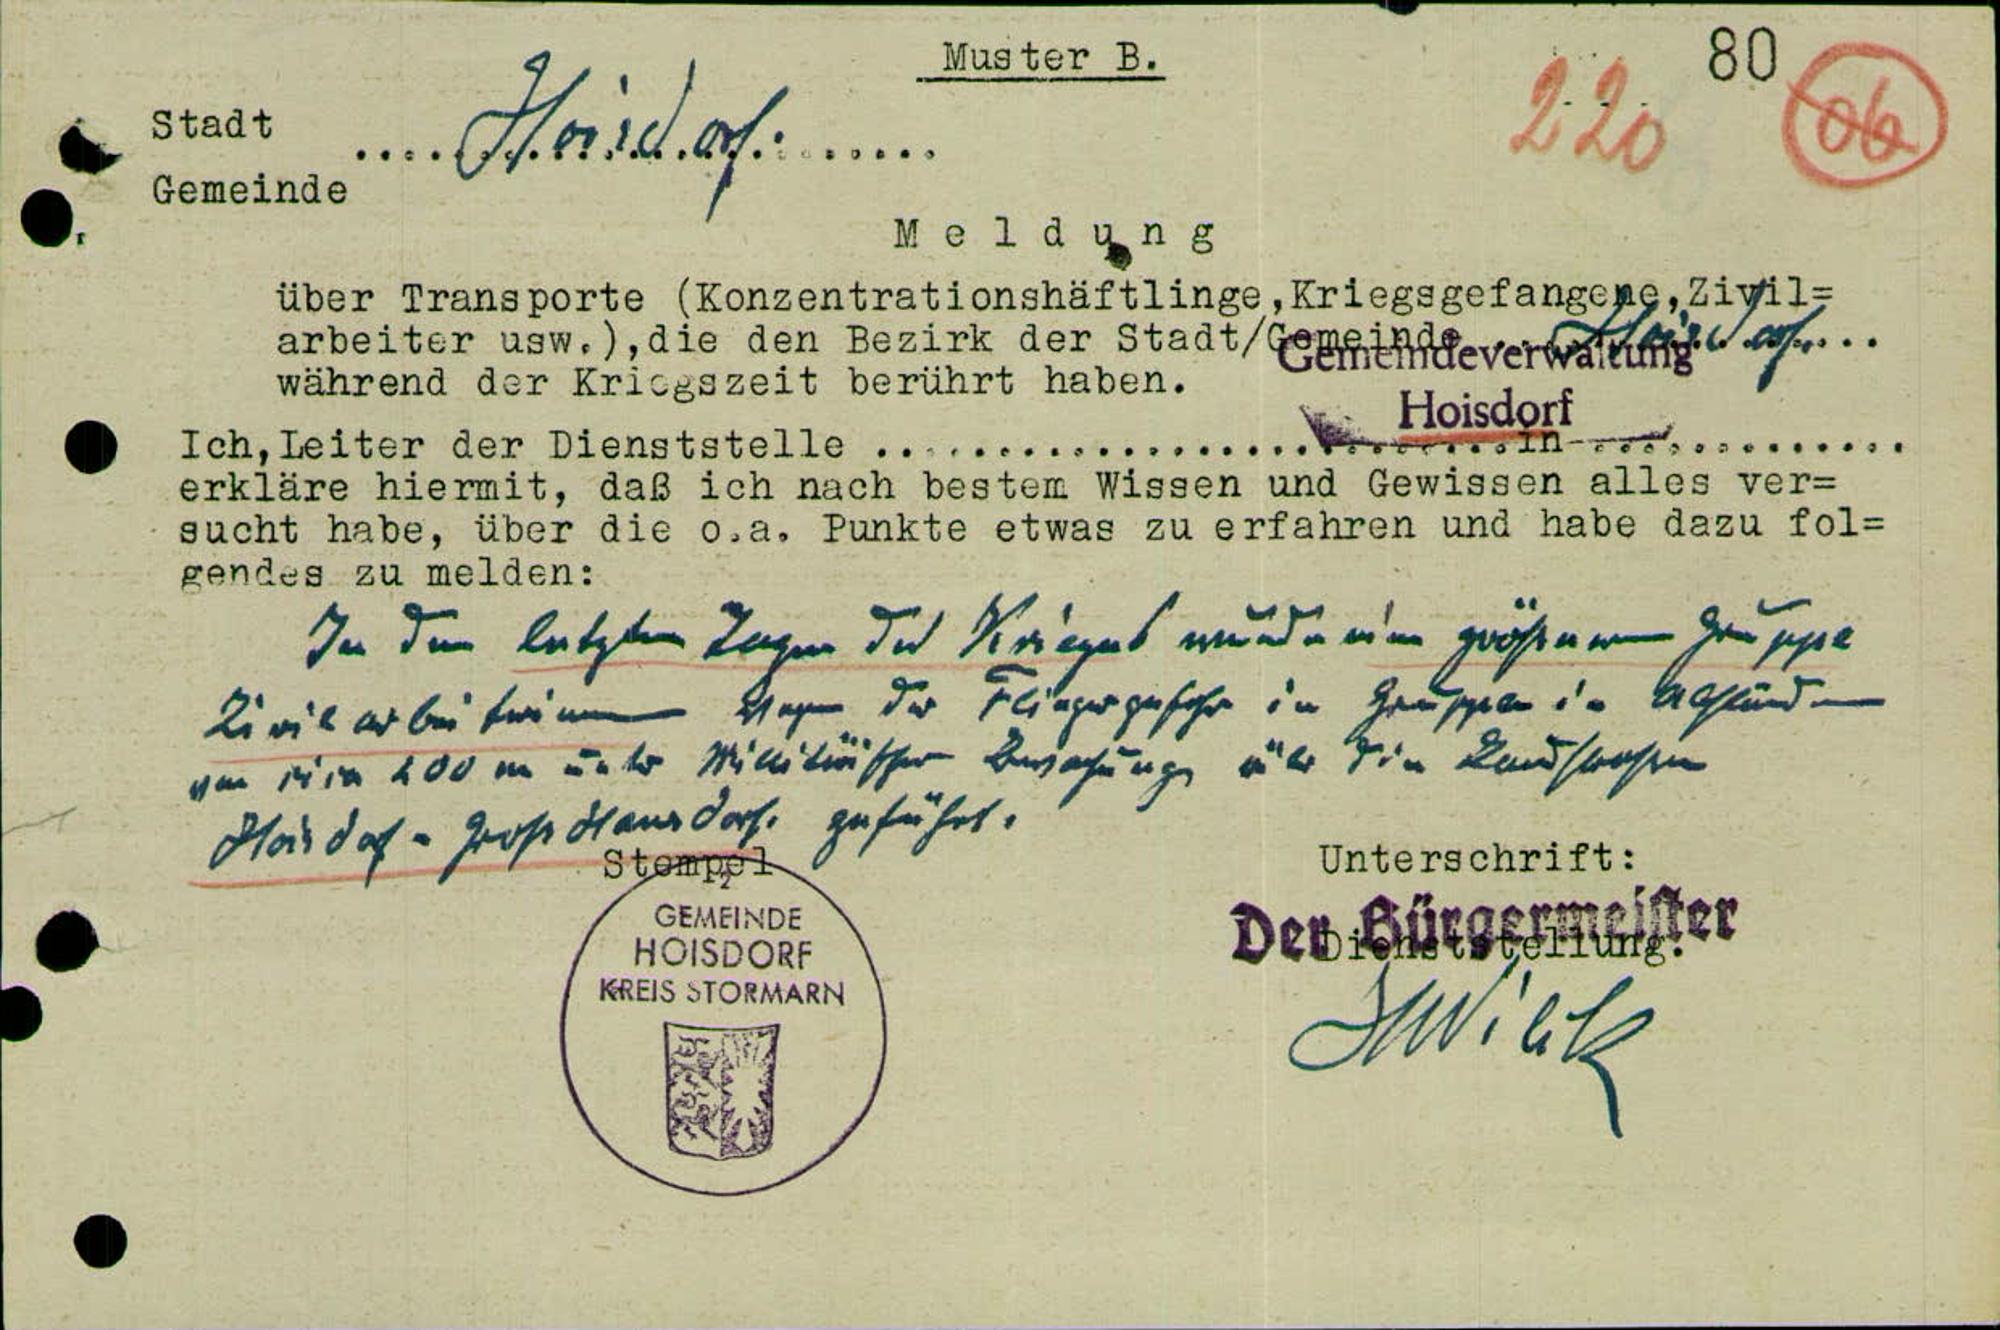 Muster B.
80
220
06
Stadt
Hoisdorf.
Gemeinde
Meldung
über Transporte (Konzentrationshäftlinge,Kriegsgefangene,Zivil=
arbeiter usw.),die den Bezirk der Stadt/Gemeinde ..Hoisdorf....
während der Kriegszeit berührt haben.
Gemeindeverwaltung
Hoisdorf
Ich,Leiter der Dienststelle ........................in..............
erkläre hiermit, daß ich nach bestem Wissen und Gewissen alles ver=
sucht habe, über die o.a. Punkte etwas zu erfahren und habe dazu fol=
gendes zu melden:
In den letzten Tagen des Krieges wurde eine grössere Gruppe
Zivilarbeiterinnen wegen der Fliegergefahr in Gruppen in Abständen
von etwa 200 m unter Militärischer Bewachung über die Landstrassen
Hoisdorf - Gross Hansdorf. geführt.
Stempel
2
GEMEINDE
HOISDORF
KREIS STORMARN
Unterschrift:
Der Bürgermeister
Dienststellung: